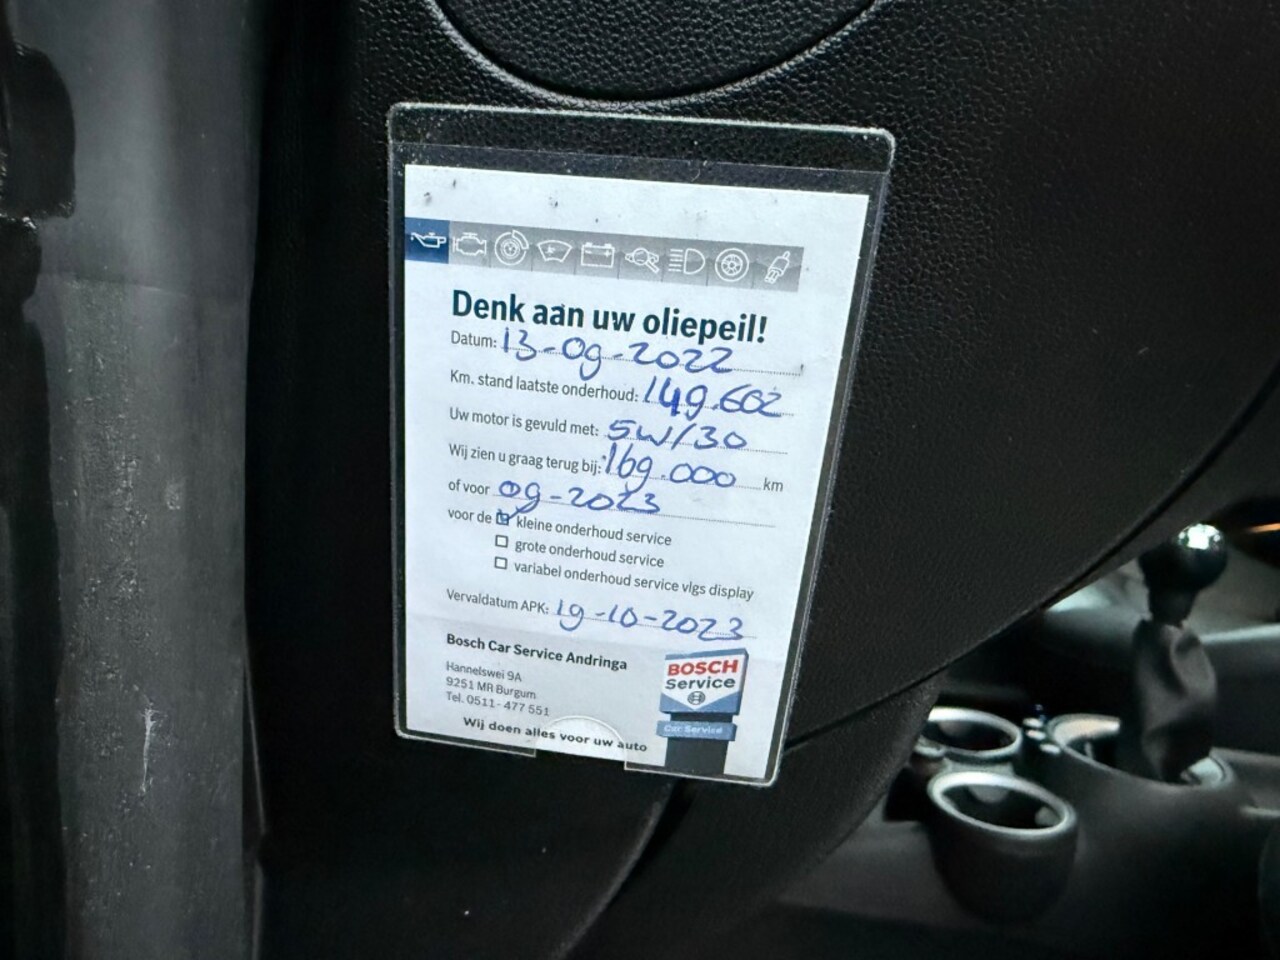 Denk aan uw oliepeil!
Datum: 13-09-2022
Km. stand laatste onderhoud: 149.602
Uw motor is gevuld met: 5W/30
Wij zien u graag terug bij: 169.000 km
of voor 09-2023
voor de ☑ kleine onderhoud service
☐ grote onderhoud service
☐ variabel onderhoud service vlgs display
Vervaldatum APK: 19-10-2023
Bosch Car Service Andringa
Hannelswei 9A
9251 MR Burgum
Tel. 0511 - 477 551
Wij doen alles voor uw auto
BOSCH
Service
Car Service